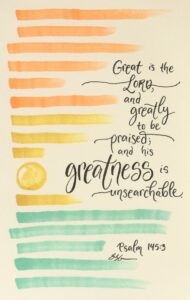 Great is the
LORD,
and
greatly
to be
praised;
and his
greatness is
unsearchable
Psalm 145:3